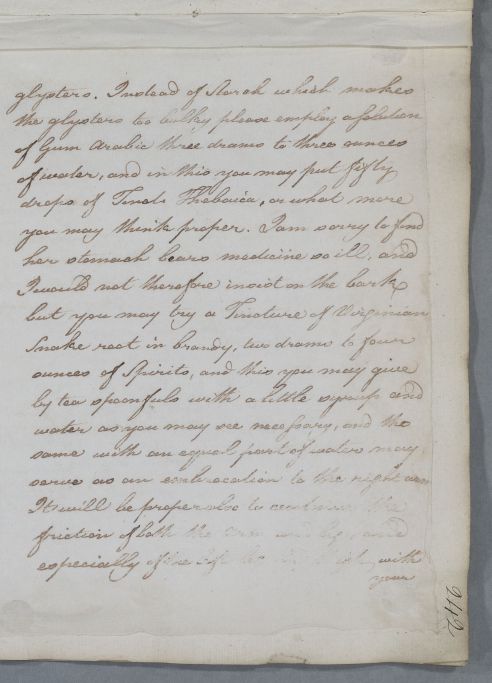 glysters. Instead of Starch which makes
the glysters too bulky please employ a solution
of Gum Arabic three drams to three ounces
of water, and in this you may put fifty
drops of Tinct. Thebaica, or what more
you may think proper. I am sorry to find
her stomach bears medicine so ill, and
I would not therefore insist on the bark
but you may try a Tincture of Virginian
Snake root in brandy, two drams to four
ounces of Spirits, and this you may give
by tea spoonfuls with a little syrup and
water as you may see necessary, and the
same with an equal part of water may
serve as an embrocation to the right arm
It will be proper also to continue the
friction of both the Arm and leg, and
especially of the with
your
242